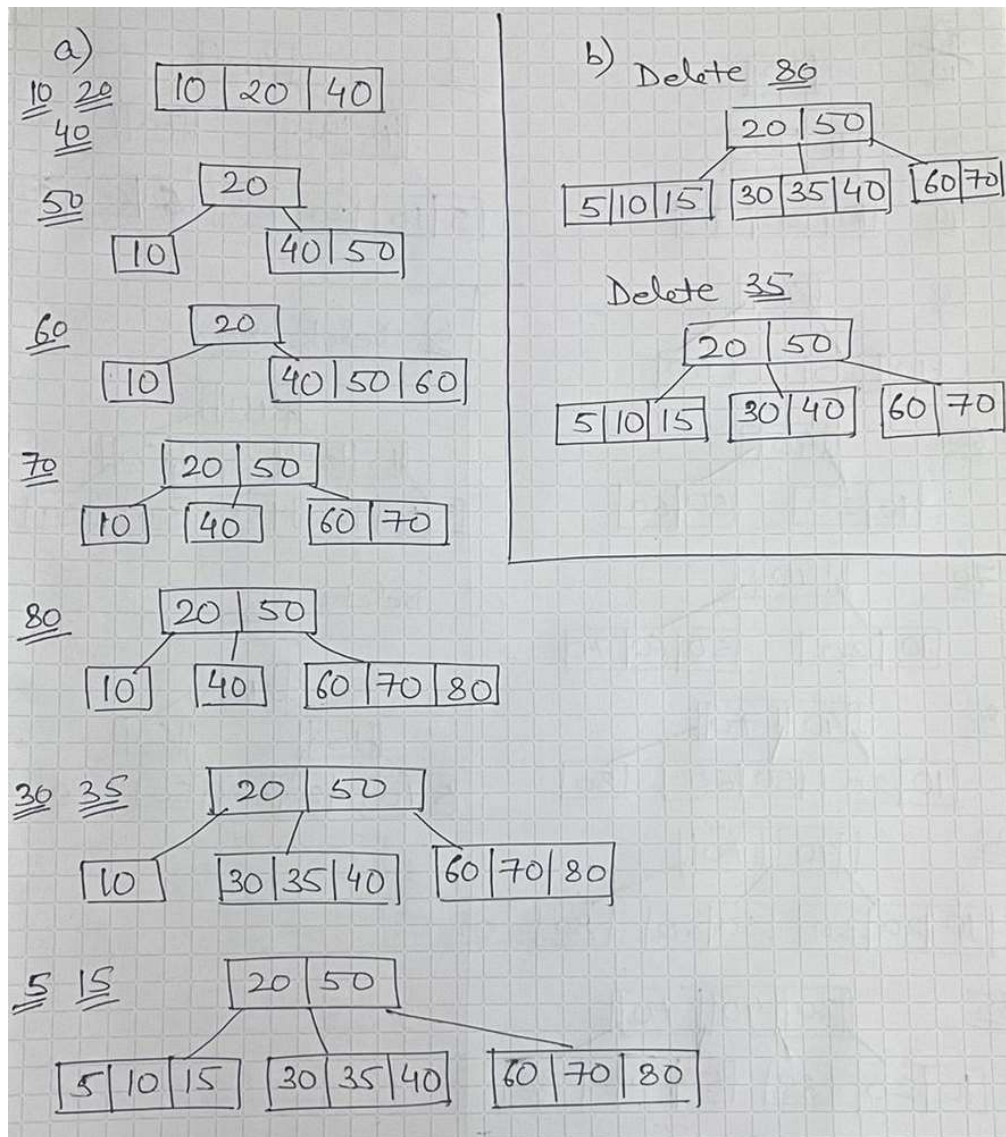 a)
10 20
40
10 20 40
50
20
10 40 50
60
20
10 40 50 60
70
20 50
10 40 60 70
80
20 50
10 40 60 70 80
30 35
20 50
10 30 35 40 60 70 80
5 15
20 50
5 10 15 30 35 40 60 70 80
b) Delete 80
20 50
5 10 15 30 35 40 60 70
Delete 35
20 50
5 10 15 30 40 60 70